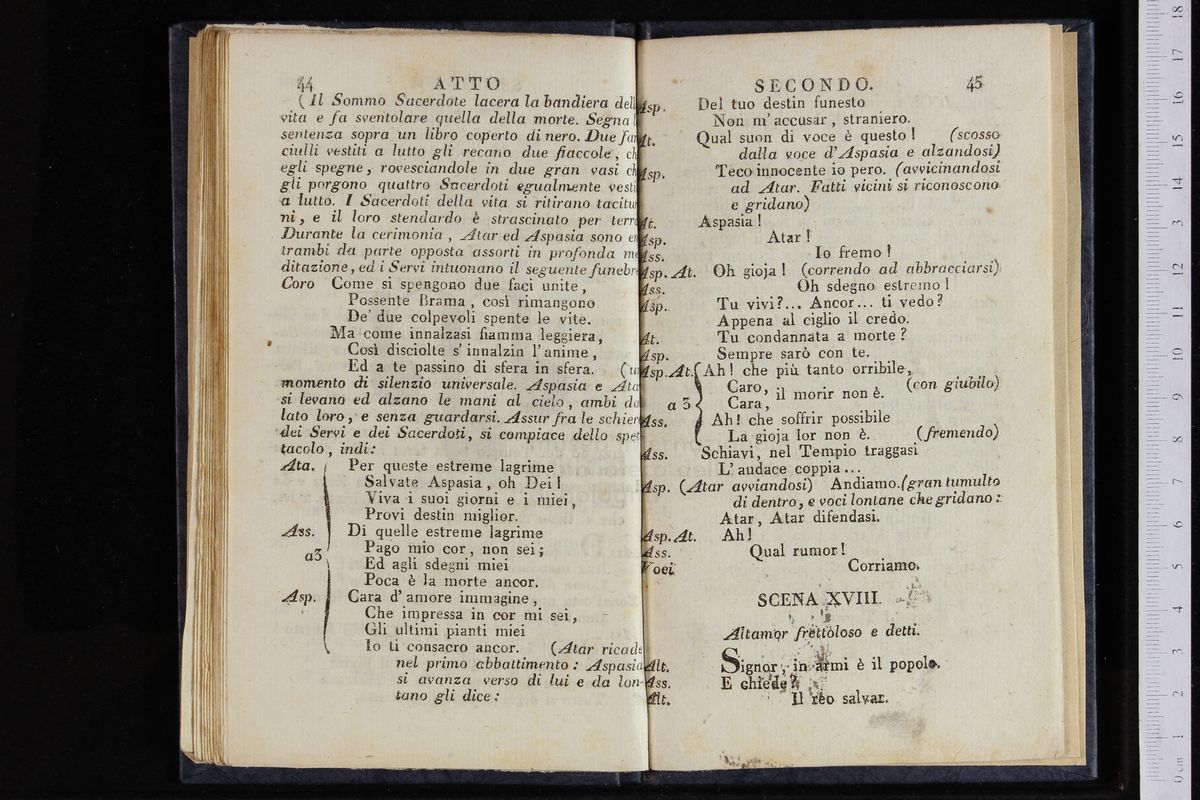 44 ATTO
(Il Sommo Sacerdote lacera la bandiera dell
vita e fa sventolare quella della morte. Segna
sentenza sopra un libro coperto di nero. Due fan
ciulli vestiti a lutto gli recano due fiaccole, ch
egli spegne, rovesciandole in due gran vasi ch
gli porgono quattro Sacerdoti egualmente vesti
a lutto. I Sacerdoti della vita si ritirano tacitur
ni, e il loro stendardo è strascinato per terra
Durante la cerimonia, Atar ed Aspasia sono en
trambi da parte opposta assorti in profonda me
ditazione, ed i Servi intuonano il seguente funebre
Coro Come si spengono due faci unite,
Possente Brama, così rimangono
De' due colpevoli spente le vite.
Ma come innalzasi fiamma leggiera,
Così disciolte s'innalzin l'anime,
Ed a te passino di sfera in sfera. (un
momento di silenzio universale. Aspasia e Ata
si levano ed alzano le mani al cielo, ambi da
lato loro, e senza guardarsi. Assur fra le schiere
dei Servi e dei Sacerdoti, si compiace dello spet
tacolo, indi:
Ata. Per queste estreme lagrime
Salvate Aspasia, oh Dei!
Viva i suoi giorni e i miei,
Provi destin miglior.
Ass. Di quelle estreme lagrime
a3 Pago mio cor, non sei;
Ed agli sdegni miei
Poca è la morte ancor.
Asp. Cara d'amore immagine,
Che impressa in cor mi sei,
Gli ultimi pianti miei
Io ti consacro ancor. (Atar ricade
nel primo abbattimento: Aspasia
si avanza verso di lui e da lon-
tano gli dice:
SECONDO. 45
Asp. Del tuo destin funesto
Non m'accusar, straniero.
At. Qual suon di voce è questo! (scosso
dalla voce d'Aspasia e alzandosi)
Asp. Teco innocente io pero. (avvicinandosi
ad Atar. Fatti vicini si riconoscono
e gridano)
At. Aspasia!
Asp. Atar!
Ass. Io fremo!
Asp. At. Oh gioja! (correndo ad abbracciarsi)
Ass. Oh sdegno estremo!
Asp. Tu vivi?... Ancor... ti vedo?
Appena al ciglio il credo.
At. Tu condannata a morte?
Asp. Sempre sarò con te.
Asp. At. Ah! che più tanto orribile,
Caro, il morir non è. (con giubilo)
a 3 Cara,
Ass. Ah! che soffrir possibile
La gioja lor non è. (fremendo)
Ass. Schiavi, nel Tempio traggasi
L'audace coppia...
Asp. (Atar avviandosi) Andiamo. (gran tumulto
di dentro, e voci lontane che gridano:
Atar, Atar difendasi.
Asp. At. Ah!
Ass. Qual rumor!
Voci Corriamo.
SCENA XVIII.
Altamor frettoloso e detti.
Alt. Signor, in armi è il popolo.
Ass. E chiede?
Alt. Il reo salvar.
0 cm 1 2 3 4 5 6 7 8 9 10 11 12 13 14 15 16 17 18